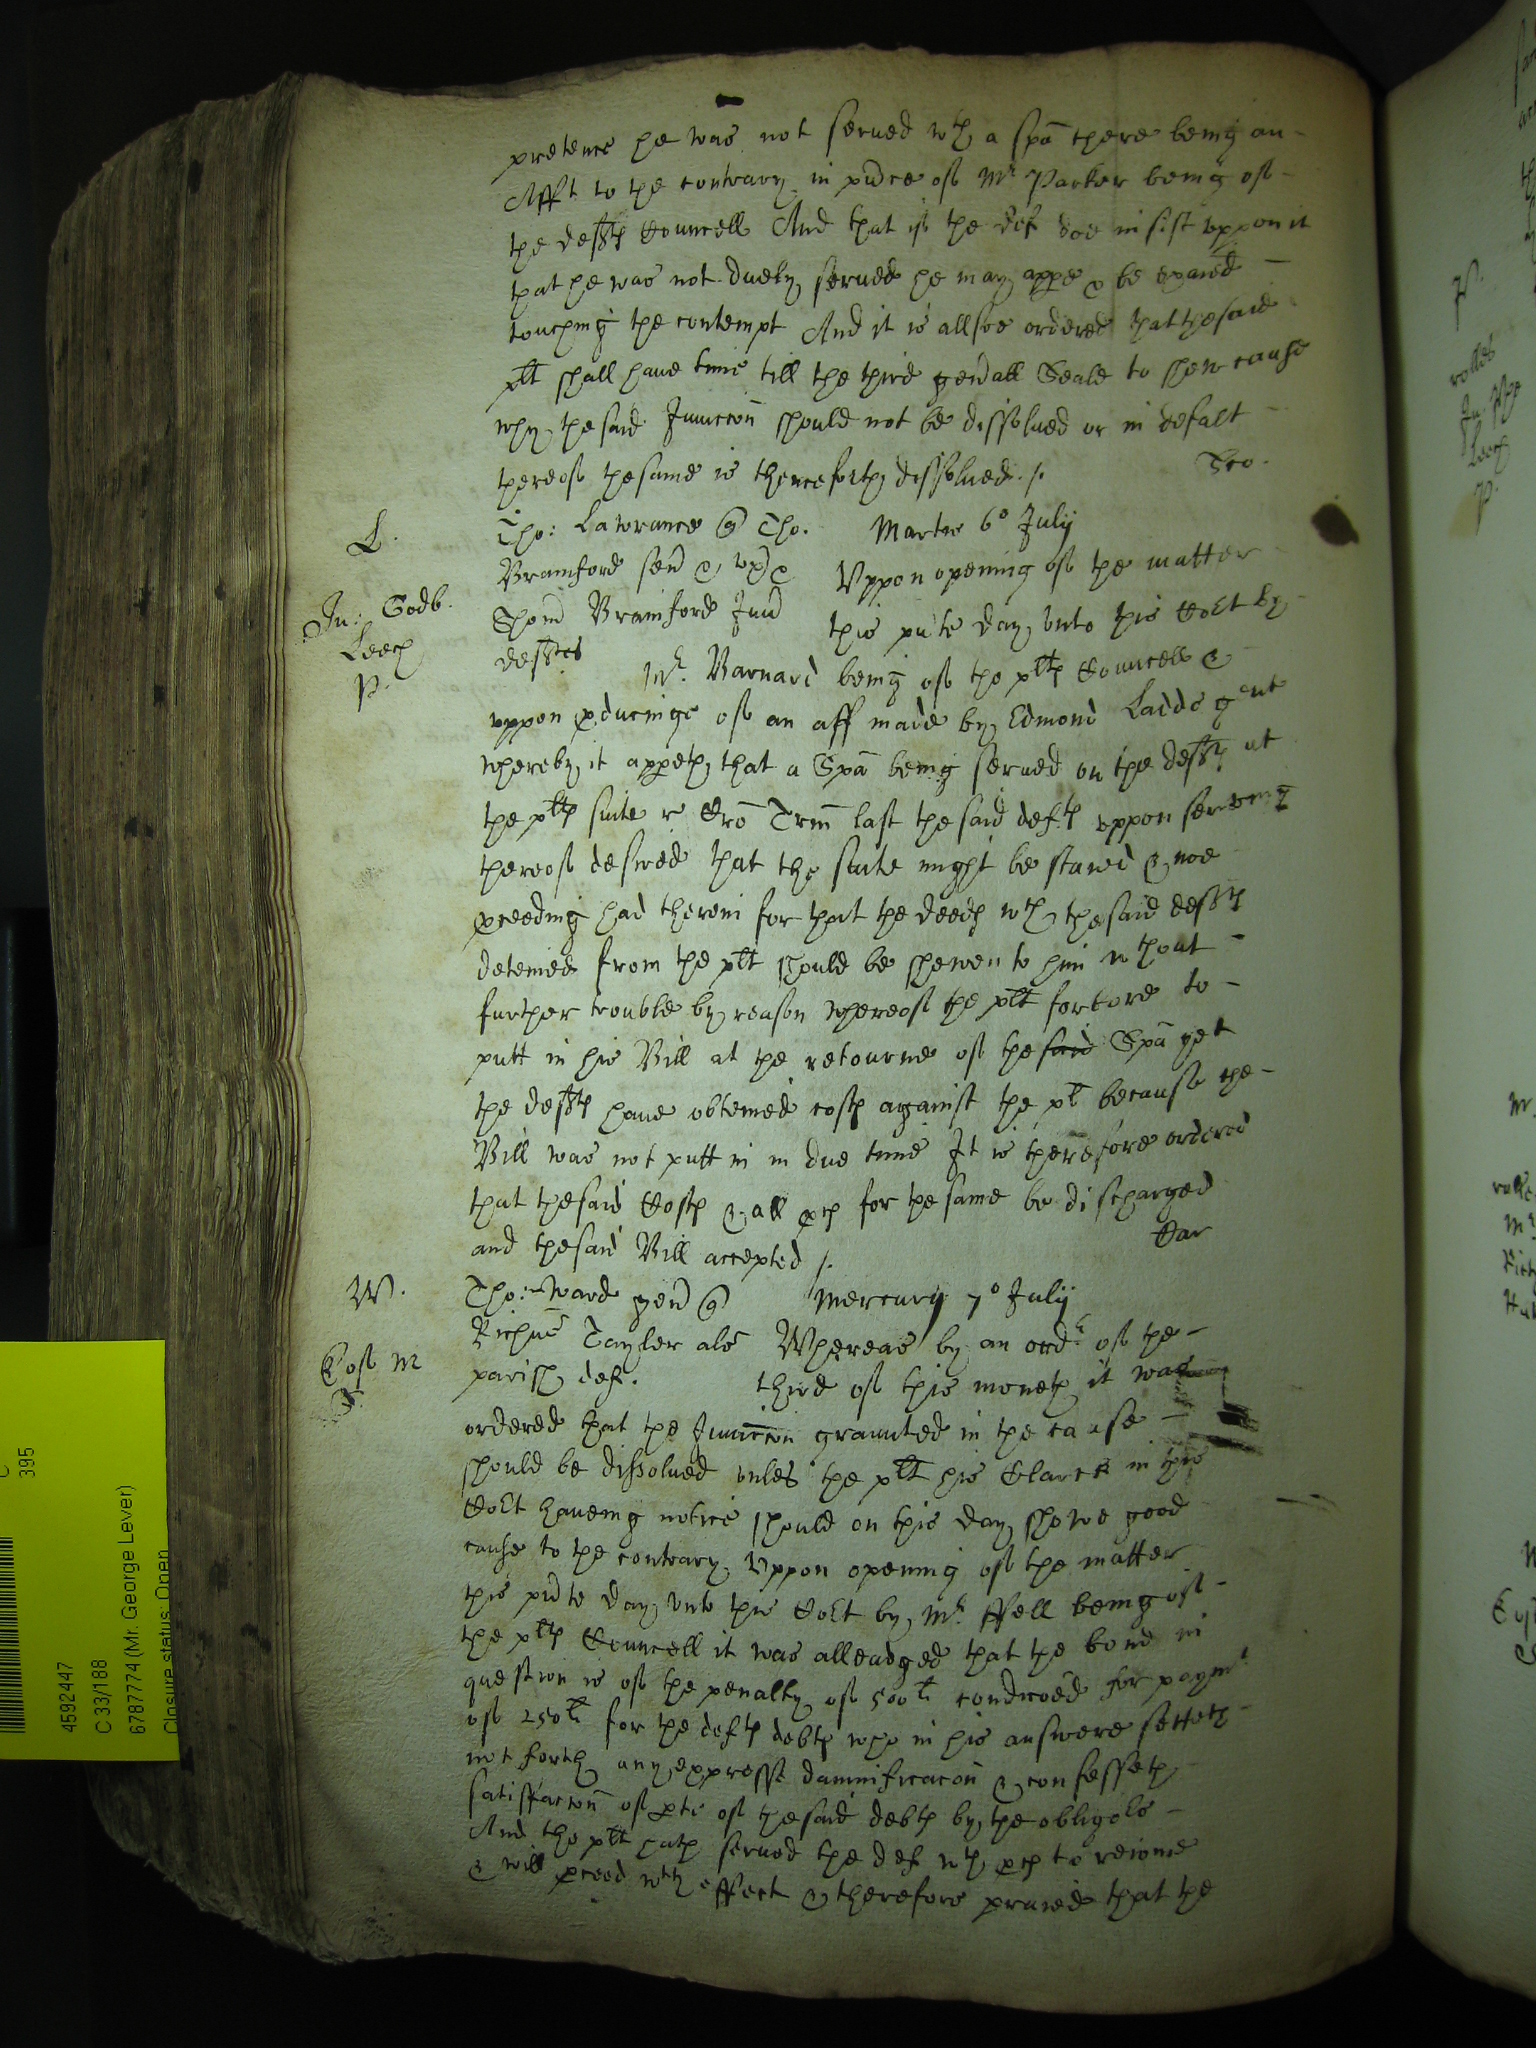 pretence he was not served wth a spā there being an
Afft to the contrary in prnce of Mr Parker being of
the defts Councell And that if the def doe insist uppon it
that he was not duely served he may appe & be exaied
touching the contempt And it is allsoe ordered that the said
plt shall have time till the third genall Seale to shew cause
why the said Iniuccon should not be dissolued or in defalt
thereof the same is thenceforth dissolued /.
L.
Tho: Lawrance Tho.
Martis 6o July
Bramford sen & ux &
Uppon opening of the matter
In: Godb.
Thom Bramford Jun
this pnte day unto this Cort by
Leech
defts
Mr. Barnard being of the plts Councell &
P.
uppon pducinge of an aff made by Edmond Ladde gent
whereby it appeth that a Spā being served on the defts at
the plts suite r Cro Trin last the said defts uppon serveing
thereof desired that the suite might be staied & noe
pceeding had therein for that the deeds wch the said defts
deteined from the plt should be shewen to him without
further trouble by reason whereof the plt forbore to
putt in his Bill at the retourne of the said Spā yet
the defts have obteined costs against the plt because the
Bill was not putt in in due time It is therefore ordered
that the said Costs & all pces for the same be discharged
and the said Bill accepted /.
Car
W.
Tho: Ward gen
Mercury 7o July
Richus Tayler als
Whereas by an ordr of the
parish def.
third of this moneth it was
ordered that the Iniuccon graunted in the cause
should be dissolved unles the plt his Clarck in this
Cort haveing notice should on this day shewe good
cause to the contrary Uppon opening of the matter
this pnte day unto this Cort by Mr. ffell being of
the plts Councell it was alleadged that the bond in
question is of the penalty of 500li condicoed for paymt
of 250li for the defts debts who in his answere setteth
not forth any expresse damnificacon & confesseth
satisfaccon of pte of the said debts by the obligols
And the plt hath served the def wth pces to reioine
& will pceed wth effect & therefore praied that the
395
4592447
C 33/188
6787774 (Mr. George Lever)
Closure status: Open